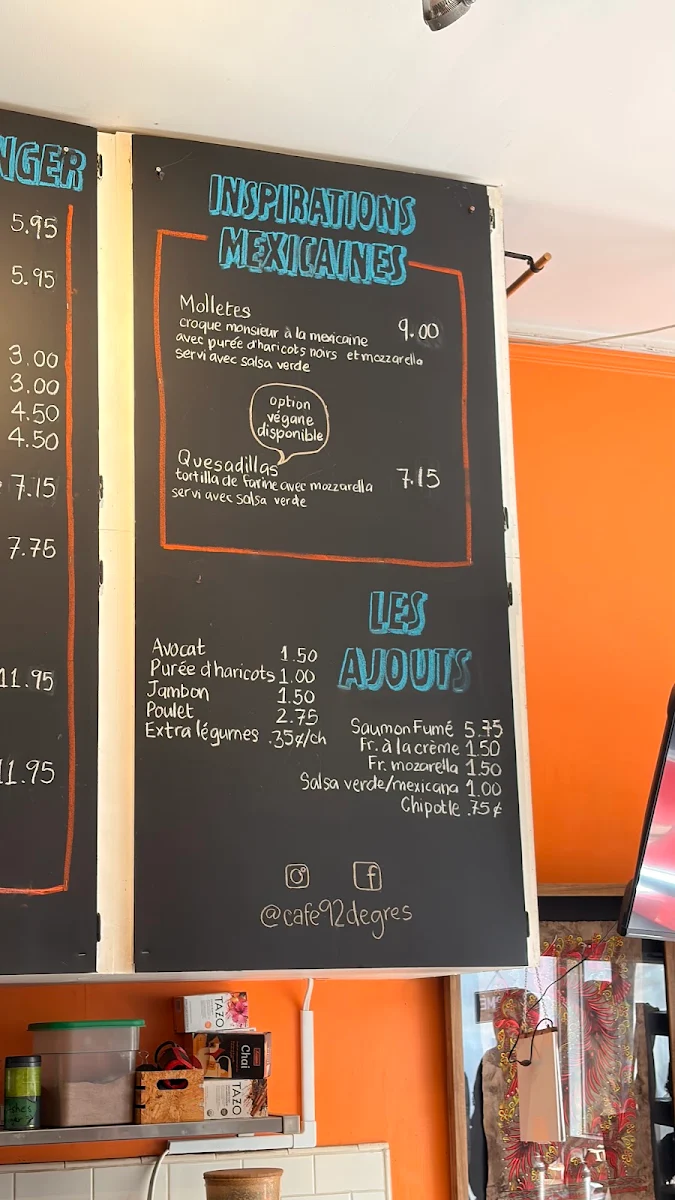 NGER
5.95
5.95
3.00
3.00
4.50
4.50
7.15
7.75
11.95
11.95
INSPIRATIONS
MEXICAINES
Molletes 9.00
croque monsieur à la mexicaine
avec purée d'haricots noirs et mozzarella
servi avec salsa verde
option
végane
disponible
Quesadillas
tortilla de farine avec mozzarella 7.15
servi avec salsa verde
LES
AJOUTS
Avocat 1.50
Purée d'haricots 1.00
Jambon 1.50
Poulet 2.75
Extra légumes .35¢/ch
Saumon Fumé 5.75
Fr. à la crème 1.50
Fr. mozarella 1.50
Salsa verde/mexicana 1.00
Chipotle .75¢
@cafe92degres
TAZO
Chai
TAZO